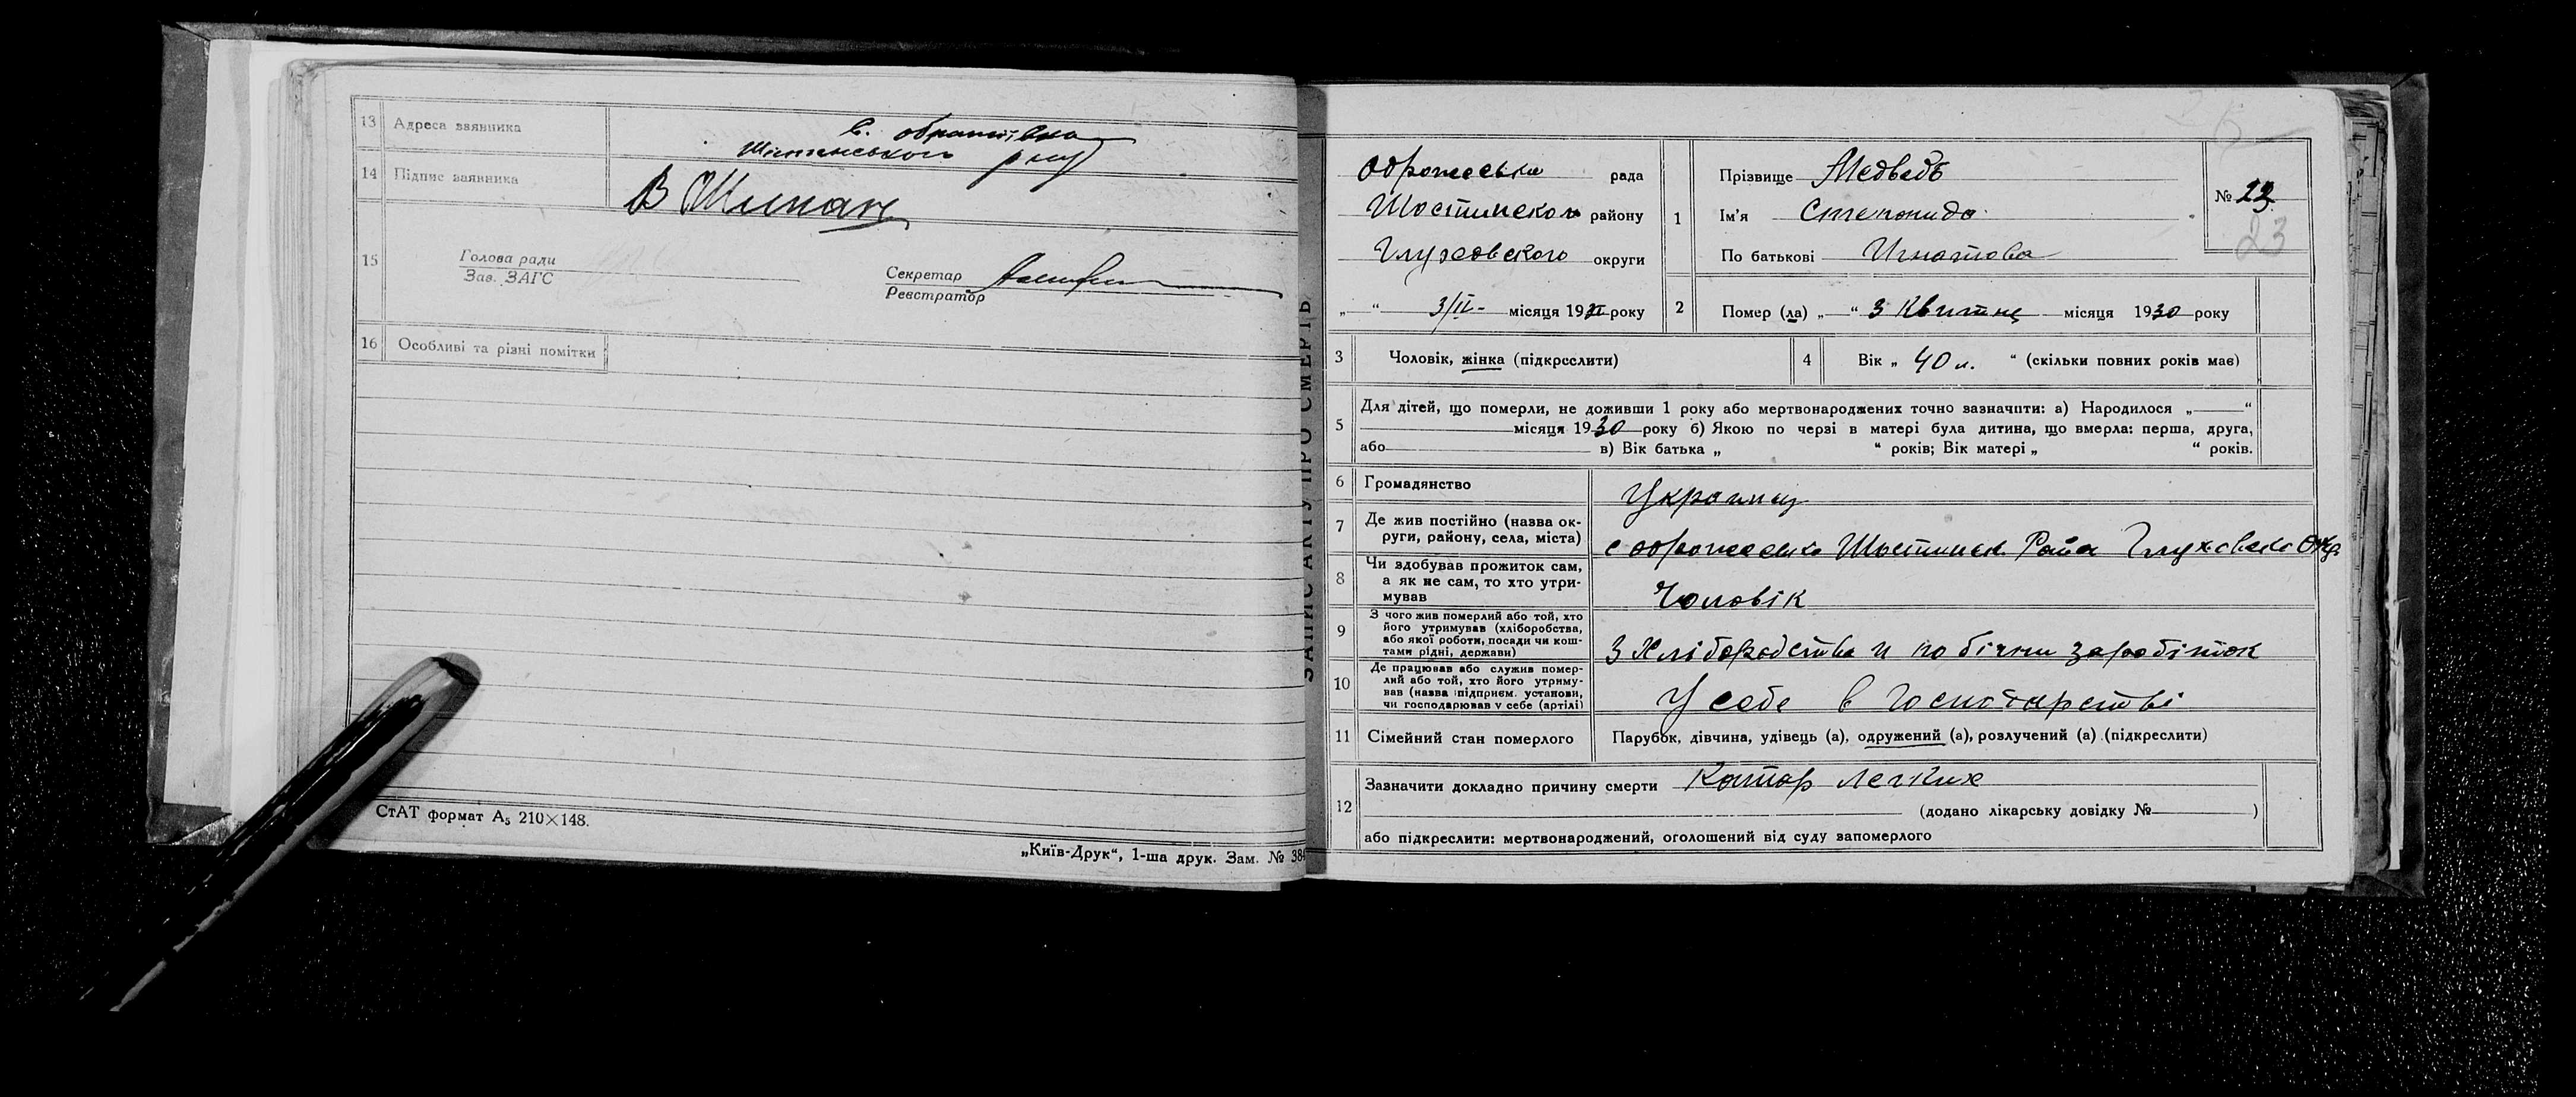 13 Адреса заявника с.
Шостинського рну
14 Підпис заявника В Шкипань
15 Голова ради
Зав. ЗАГС
Секретар
Реєстратор
16 Особливі та різні помітки
СтАТ формат А5 210×148.
„Київ-Друк“, 1-ша друк. Зам. № 384
ЗАПИС АКТУ ПРО СМЕРТЬ
рада
Шостинского району
Глуховского округи
„ “ 3/IV- місяця 19 року
1 Прізвище Медведь
Ім'я Степонида
По батькові Игнатова
№ 23
23
2 Помер (ла) „ “ 3 Квитня місяця 1930 року
3 Чоловік, жінка (підкреслити)
4 Вік „ 40 л. “ (скільки повних років має)
5 Для дітей, що померли, не доживши 1 року або мертвонароджених точно зазначити: а) Народилося „ “
місяця 1930 року б) Якою по черзі в матері була дитина, що вмерла: перша, друга,
або в) Вік батька „ “ років; Вік матері „ “ років.
6 Громадянство Украинц
7 Де жив постійно (назва ок-
руги, району, села, міста)
с Шостинск Глуховско Окр
8 Чи здобував прожиток сам,
а як не сам, то хто утри-
мував
Чоловік
9 З чого жив померлий або той, хто
його утримував (хліборобства,
або якої роботи, посади чи кош-
тами рідні, держави)
З Хліборобства и побічни заробіток
10 Де працював або служив помер-
лий або той, хто його утриму-
вав (назва підприєм. установи,
чи господарював у себе (артілі)
У себе в Господарстві
11 Сімейний стан померлого Парубок, дівчина, удівець (а), одружений (а), розлучений (а) (підкреслити)
12 Зазначити докладно причину смерти Катар легких
(додано лікарську довідку № )
або підкреслити: мертвонароджений, оголошений від суду запомерлого